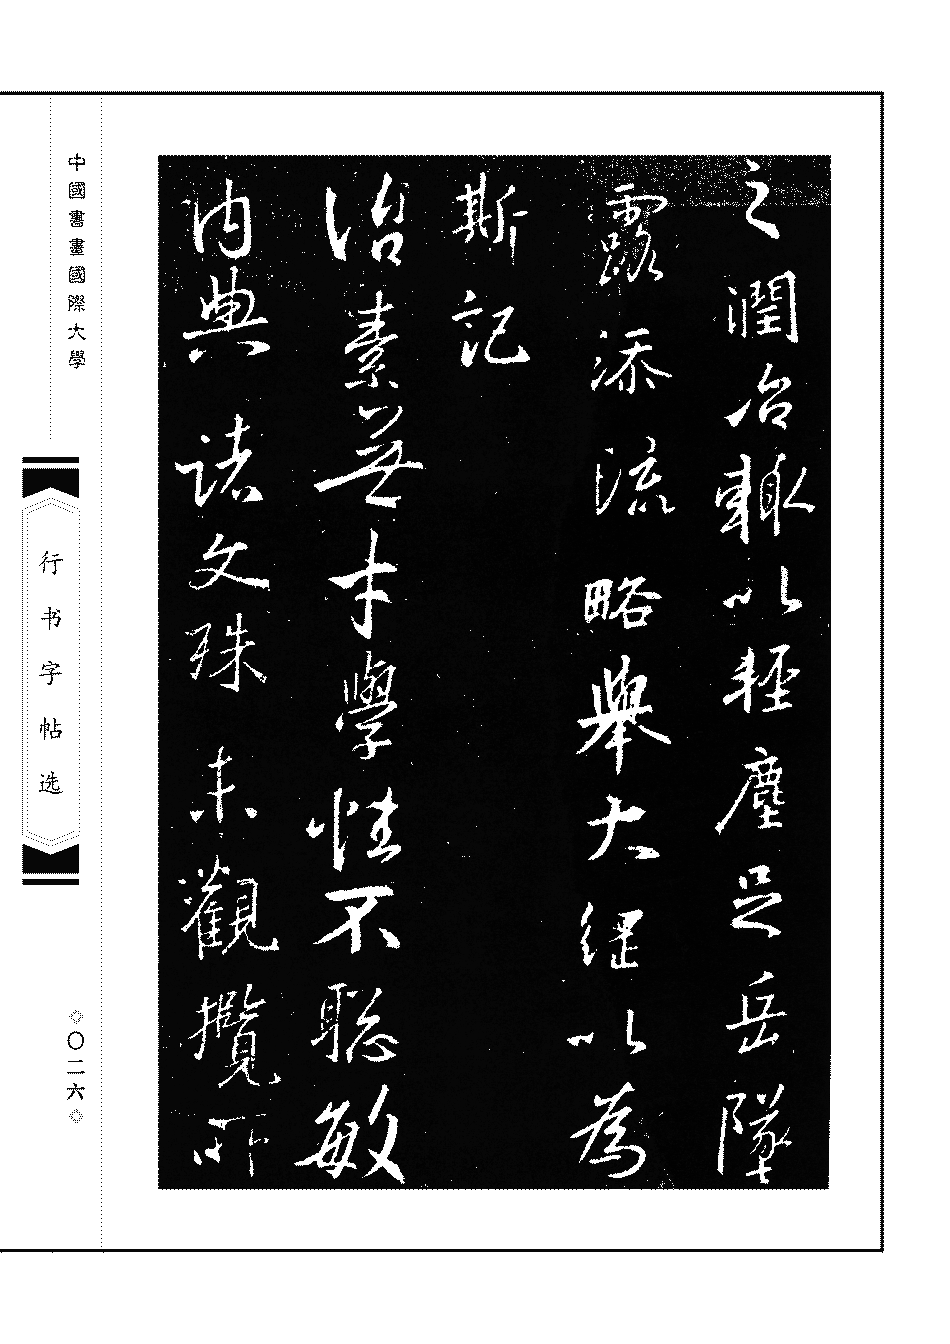 之潤治輙以輕塵足岳墜
露添流略舉大綱以為
斯記
治素無才學性不聰敏
内典諸文殊未觀攬所
中國書畫國際大學
行书字帖选
〇二六